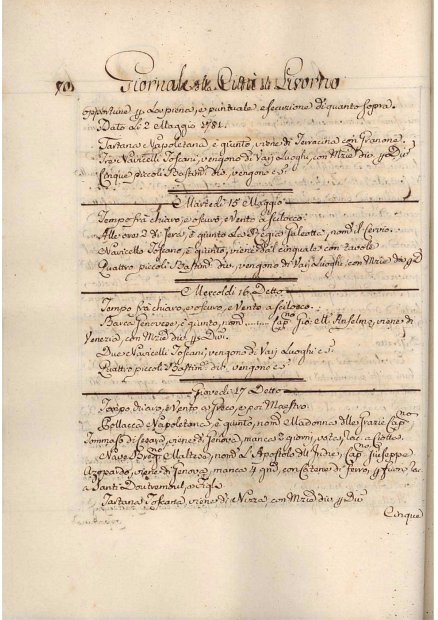 Giornale della Città di Livorno
opportune p. la piena, e puntuale esecuzione di quanto sopra.
Dato li 2 Maggio 1781.
Tartana Napoletana è giunto, viene di Terracina con Granone.
Tre Navicelli Toscani, vengono da Varij Luoghi, con Mrzie div. p. Div.
Cinque piccoli Bastim. div. vengono e s.
Martedì 15 Maggio
Tempo frà chiaro, e oscuro, Vento a scilocco.
Alle ore 2 di sera, è giunto la Regia nond. il servio.
Navicello Toscano, è giunto, viene dal Cinquale con tavole
Quattro piccoli Bastim. div. vengono di Varij Luoghi con Mrzie div. p. D.
Mercoldì 16 Detto
Tempo frà chiaro, e oscuro, e Vento a scilocco.
Barca Genovese, è giunto, nond. ........ Cap.no Gio. Anselmo, viene di
Venezia, con Mrzie div. p. Div.
Due Navicelli Toscani, vengono da Varij Luoghi e s.
Quattro piccoli Bastim. div. vengono e s.
Giovedì 17 Detto
Tempo chiaro, e Vento a Greco, e poi Maestro.
Pollacca Napoletana, è giunto, nond. Madonna delle Grazie Cap.no
Tommaso di viene di Genova, manca 2 giorni,
Nave Maltese, nond. L'Apostolo dell'Indie, Cap.no Giuseppe
Azopardo, viene di Genova, manca 4 gni, con Catene di ferro,
a Santi e Figli
Tartana Toscana, viene di Nizza, con Mrzie div. p. Div.
Cinque